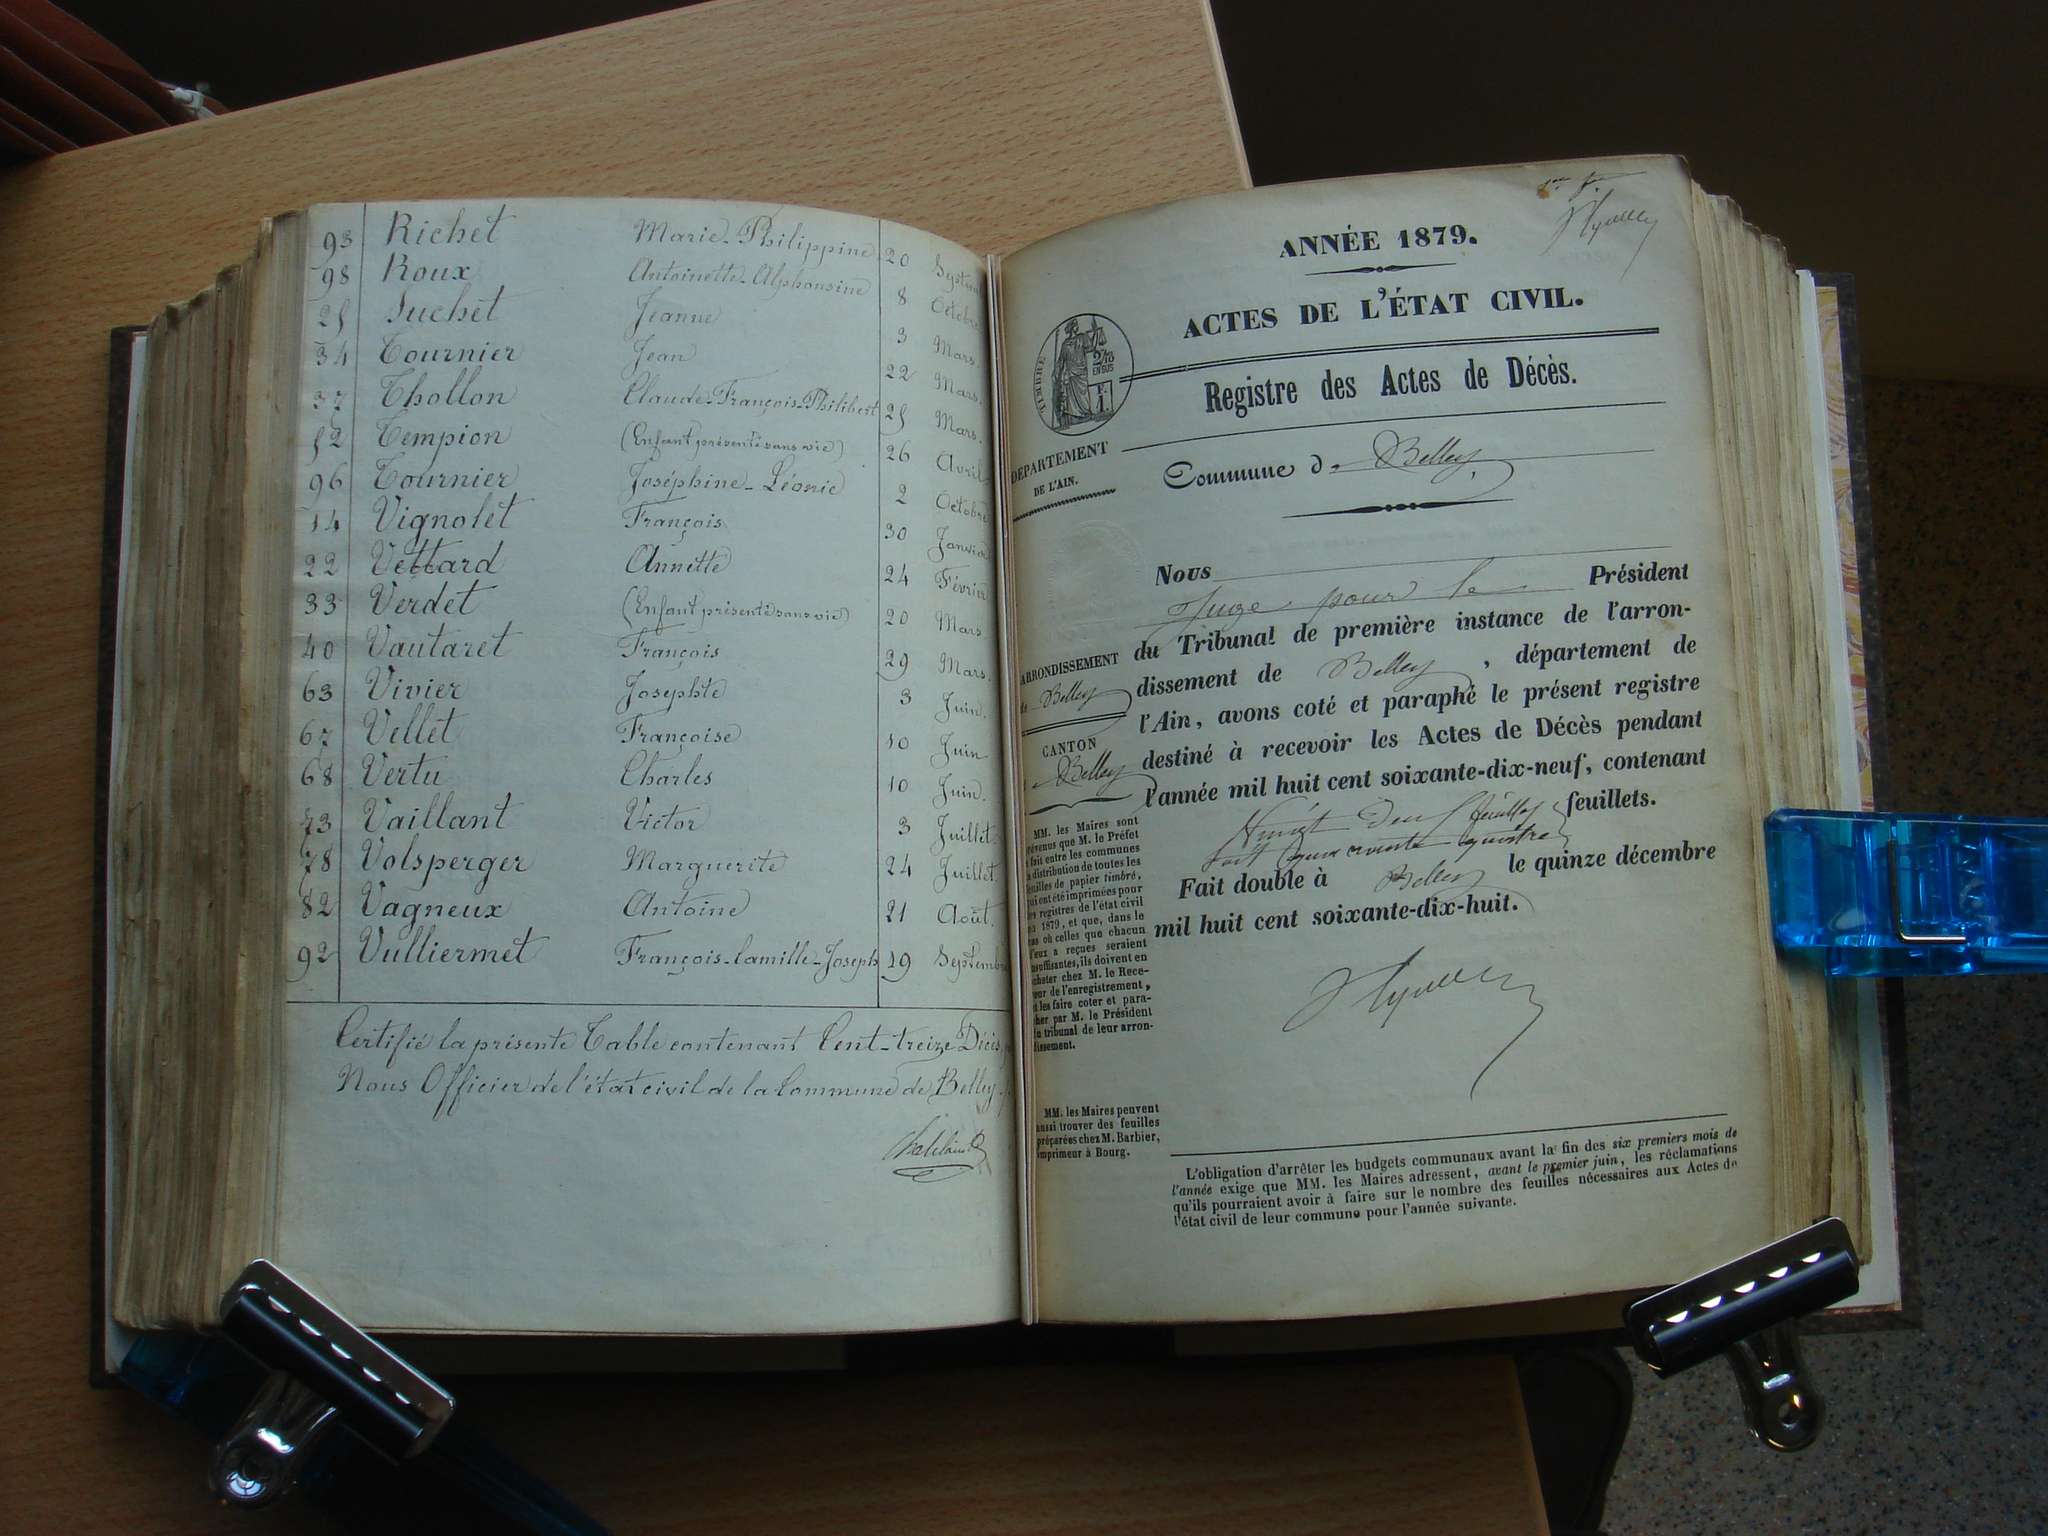 93 Richet Marie-Philippine 20 Septem
98 Roux Antoinette-Alphonsine 8 Octobre
25 Suchet Jeanne 3 Mars
34 Tournier Jean 22 Mars.
37 Thollon Claude-François-Philibert 25 Mars.
52 Tempion (Enfant présenté sans vie) 26 Avril
96 Tournier Joséphine-Léonie 2 Octobre
14 Vignolet François 30 Janvier
22 Vettard Annette 24 Février
33 Verdet (Enfant présenté sans vie) 20 Mars
40 Vautaret François 29 Mars.
63 Vivier Josephte 3 Juin.
67 Vellet Françoise 10 Juin
68 Vertu Charles 10 Juin.
73 Vaillant Victor 3 Juillet.
78 Volsperger Marguerite 24 Juillet.
82 Vagneux Antoine 21 Août.
92 Vulliermet François-Camille-Joseph 19 Septembre
Certifié la présente Table contenant Cent-treize Décès,
Nous Officier de l'état civil de la Commune de Belley
ANNÉE 1879.
ACTES DE L'ÉTAT CIVIL.
TIMBRE
2/10
EN SUS
F.
1.
Registre des Actes de Décès.
DÉPARTEMENT
DE L'AIN.
Commune de Belley
Nous
Juge pour le Président
du Tribunal de première instance de l'arron-
dissement de Belley, département de
l'Ain, avons coté et paraphé le présent registre
destiné à recevoir les Actes de Décès pendant
l'année mil huit cent soixante-dix-neuf, contenant
Vingt Deux feuilles feuillets.
soit quarante quatre
Fait double à Belley le quinze décembre
mil huit cent soixante-dix-huit.
ARRONDISSEMENT
de Belley
CANTON
Belley
MM. les Maires sont
prévenus que M. le Préfet
a fait entre les communes
la distribution de toutes les
feuilles de papier timbré,
qui ont été imprimées pour
les registres de l'état civil
de 1879, et que, dans le
cas où celles que chacun
d'eux a reçues seraient
insuffisantes, ils doivent en
acheter chez M. le Rece-
veur de l'enregistrement,
et les faire coter et para-
pher par M. le Président
du tribunal de leur arron-
dissement.
MM. les Maires peuvent
aussi trouver des feuilles
préparées chez M. Barbier,
imprimeur à Bourg.
L'obligation d'arrêter les budgets communaux avant la fin des six premiers mois de
l'année exige que MM. les Maires adressent, avant le premier juin, les réclamations
qu'ils pourraient avoir à faire sur le nombre des feuilles nécessaires aux Actes de
l'état civil de leur commune pour l'année suivante.